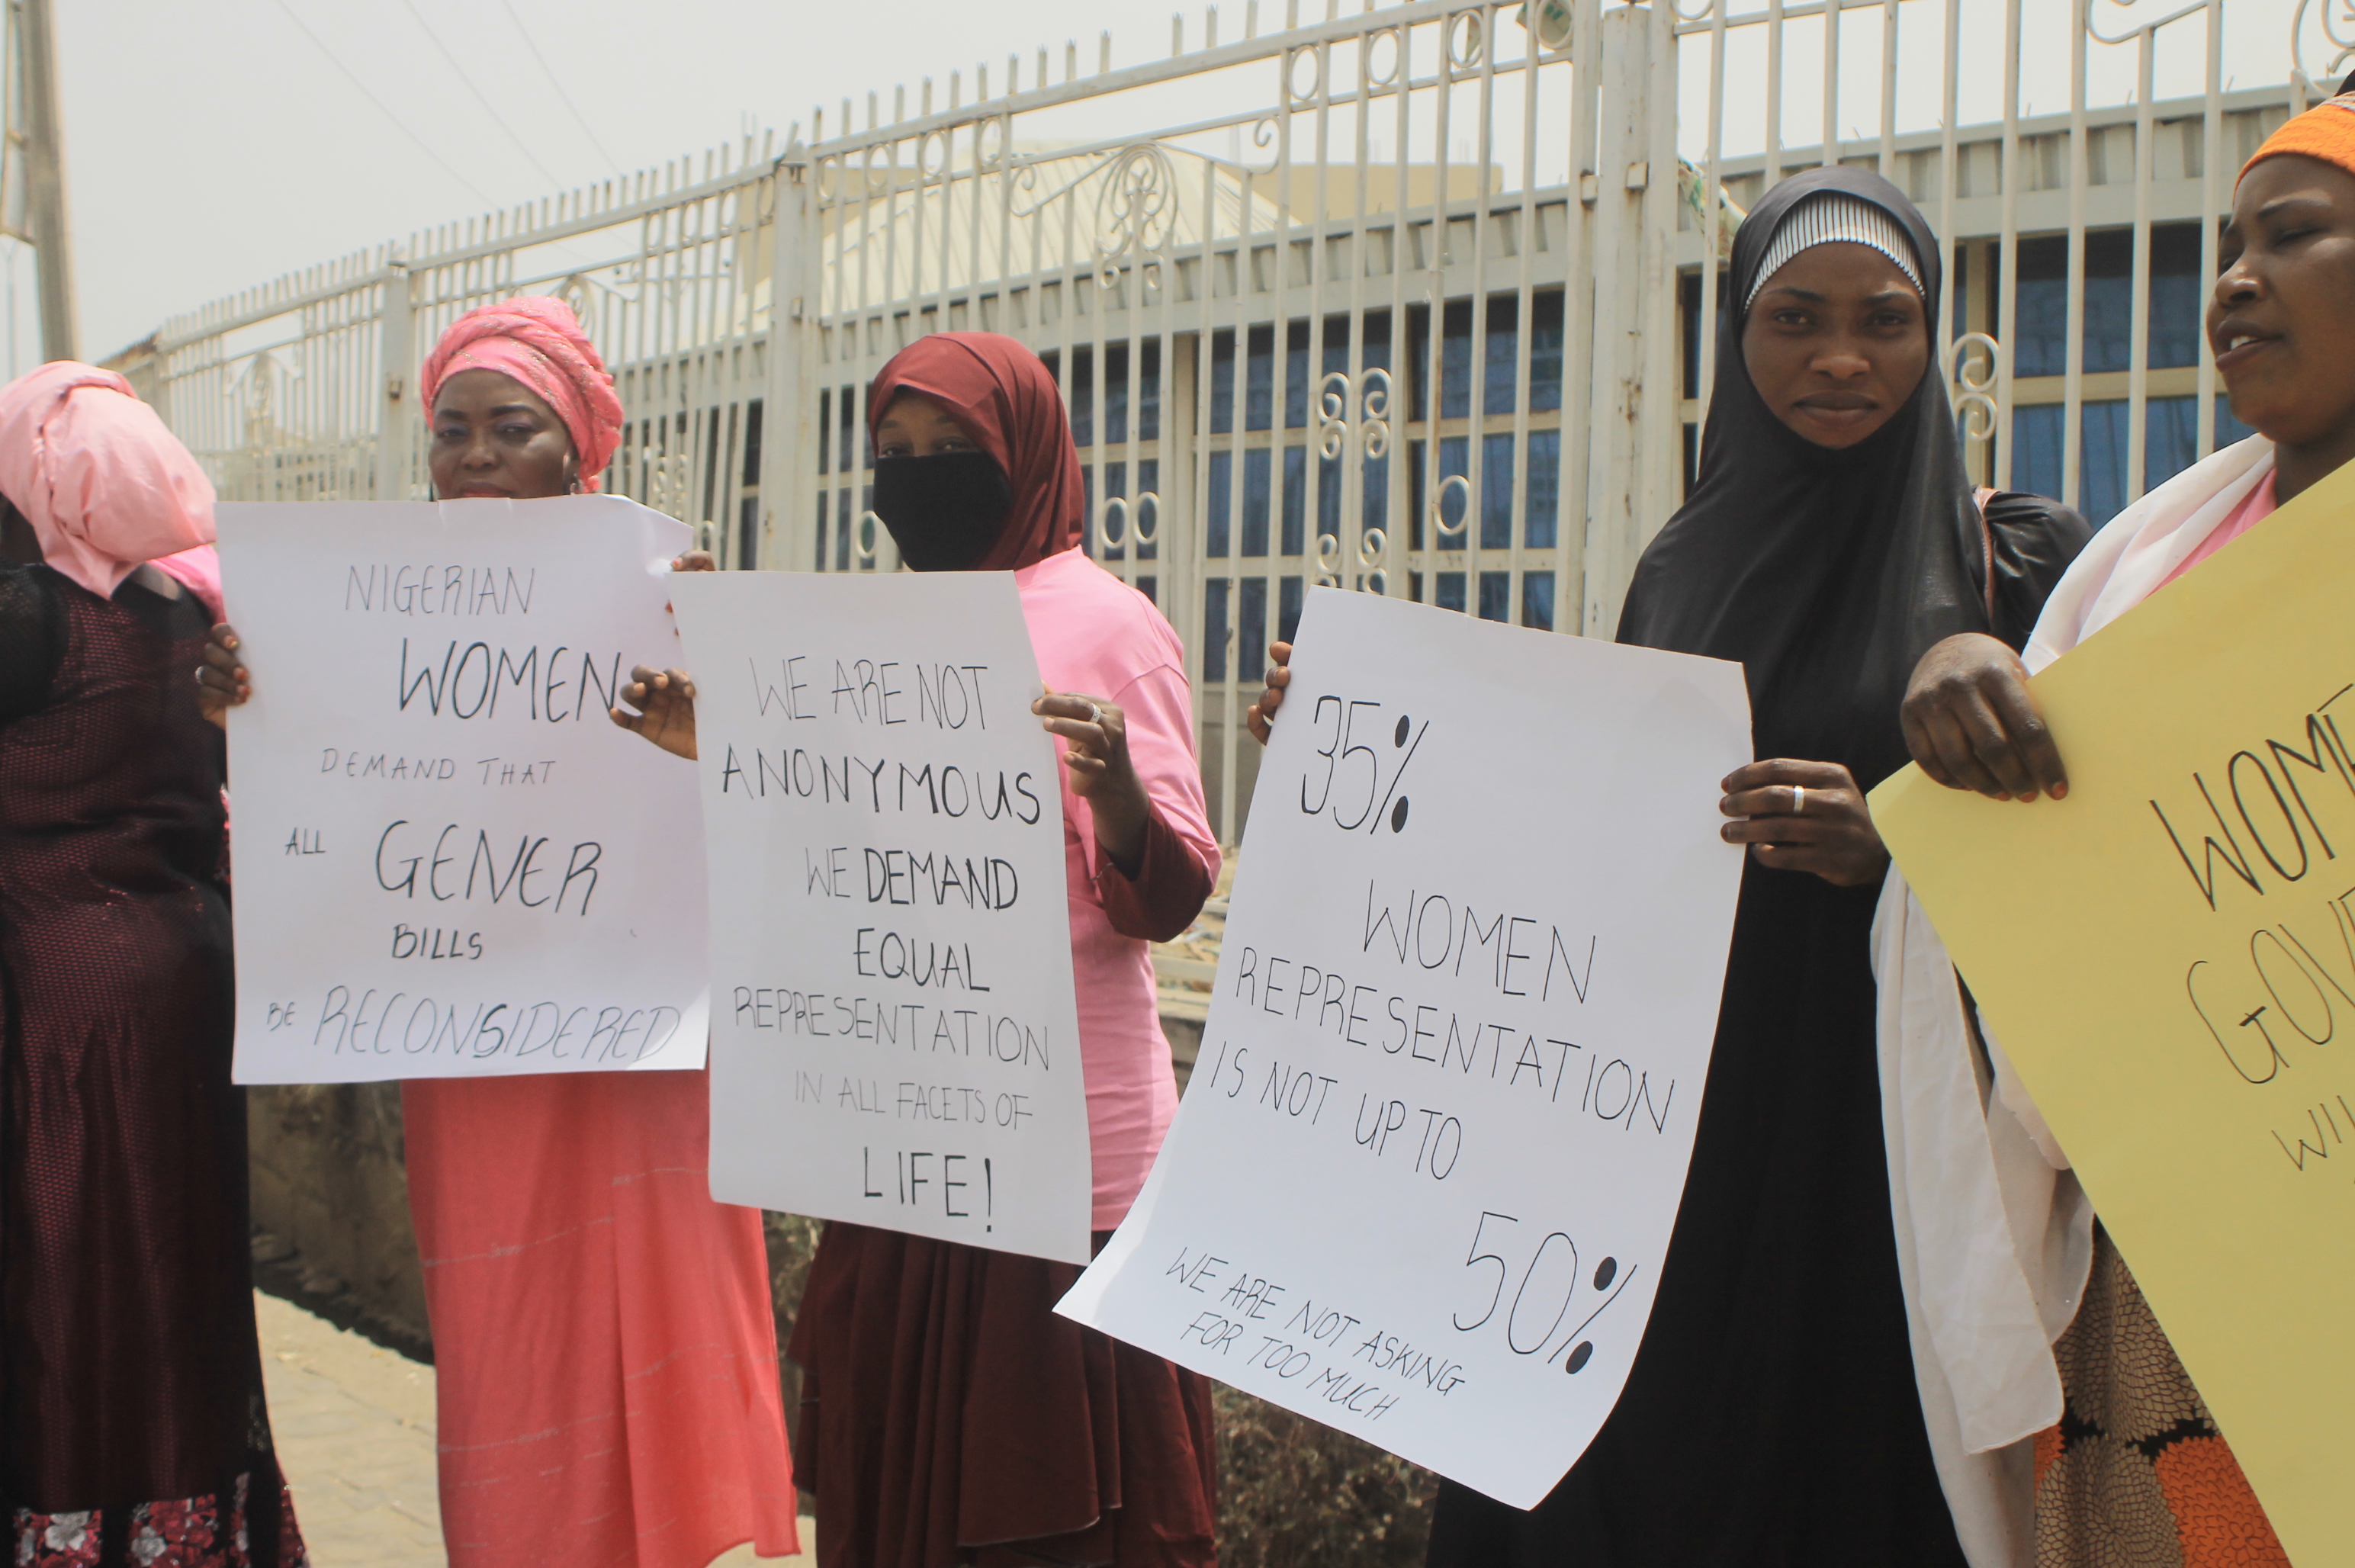 NIGERIAN
WOMEN
DEMAND THAT
ALL GENER
BILLS
BE RECONSIDERED
WE ARE NOT
ANONYMOUS
WE DEMAND
EQUAL
REPRESENTATION
IN ALL FACETS OF
LIFE!
35%
WOMEN
REPRESENTATION
IS NOT UP TO
50%
WE ARE NOT ASKING
FOR TOO MUCH